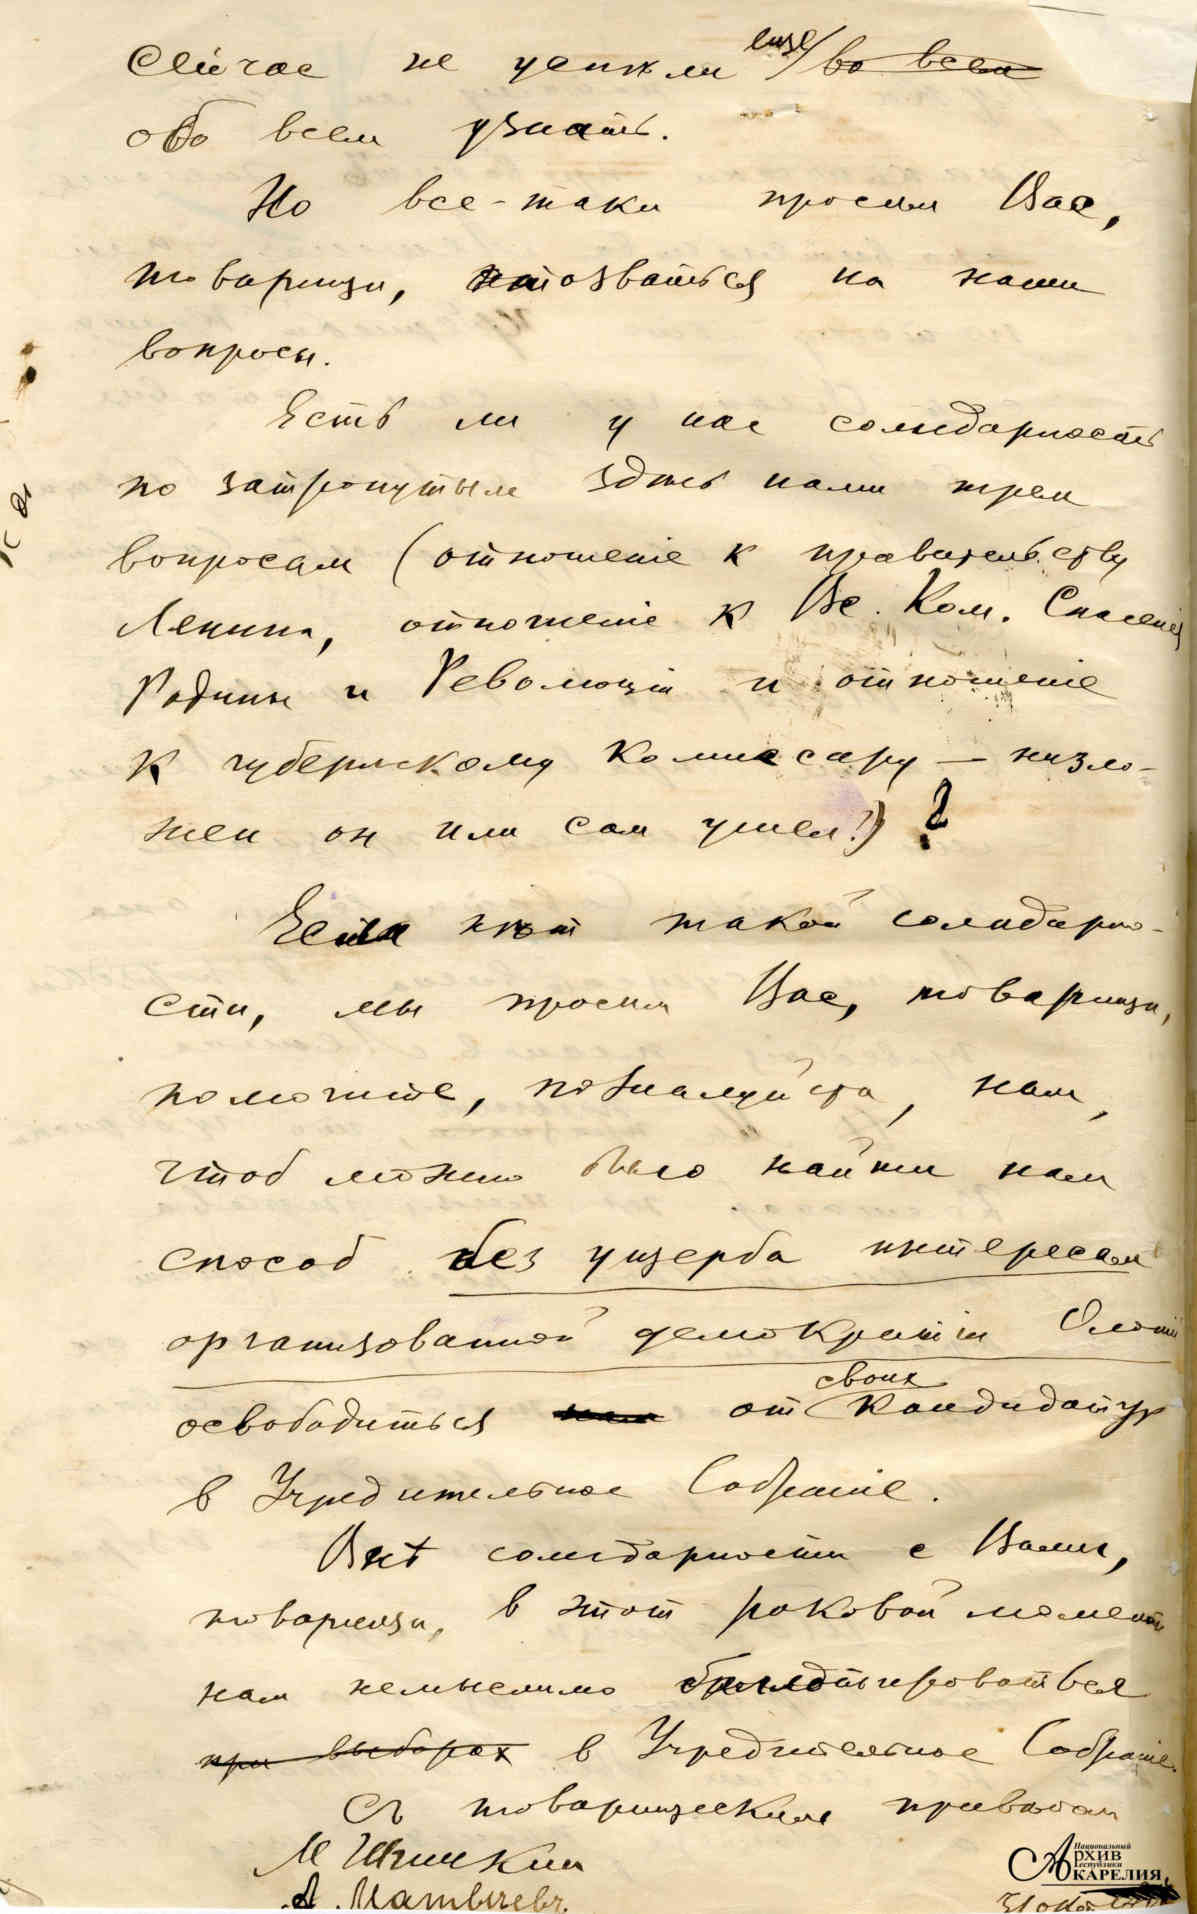 Сейчас не успели еще ~~во всем~~
обо всем узнать.
Но все-таки просим Вас,
товарищи, отозваться на наши
вопросы.
Есть ли у нас солидарность
по затронутым здесь нами трем
вопросам (отношенiе к правительству
Ленина, отношенiе к Вс. Ком. Спасенiя
Родины и Революцiи и отношенiе
к губернскому комиссару — низло-
жен он или сам ушел?) ?
Если нѣт такой солидарно-
сти, мы просим Вас, товарищи,
помогите, пожалуйста, нам,
чтоб можно было найти нам
способ без ущерба интересам
организованной демократiи Олонiи
освободиться от своих кандидатур
в Учредительное Собранiе.
Внѣ солидарности с Вами,
товарищи, в этот роковой момент
нам немыслимо
~~при выборах~~ в Учредительное Собранiе.
Съ товарищеским привѣтом
М Шишкин
А. Матвѣевъ.
Национальный
АРХИВ
Республики
КАРЕЛИЯ
31 окт